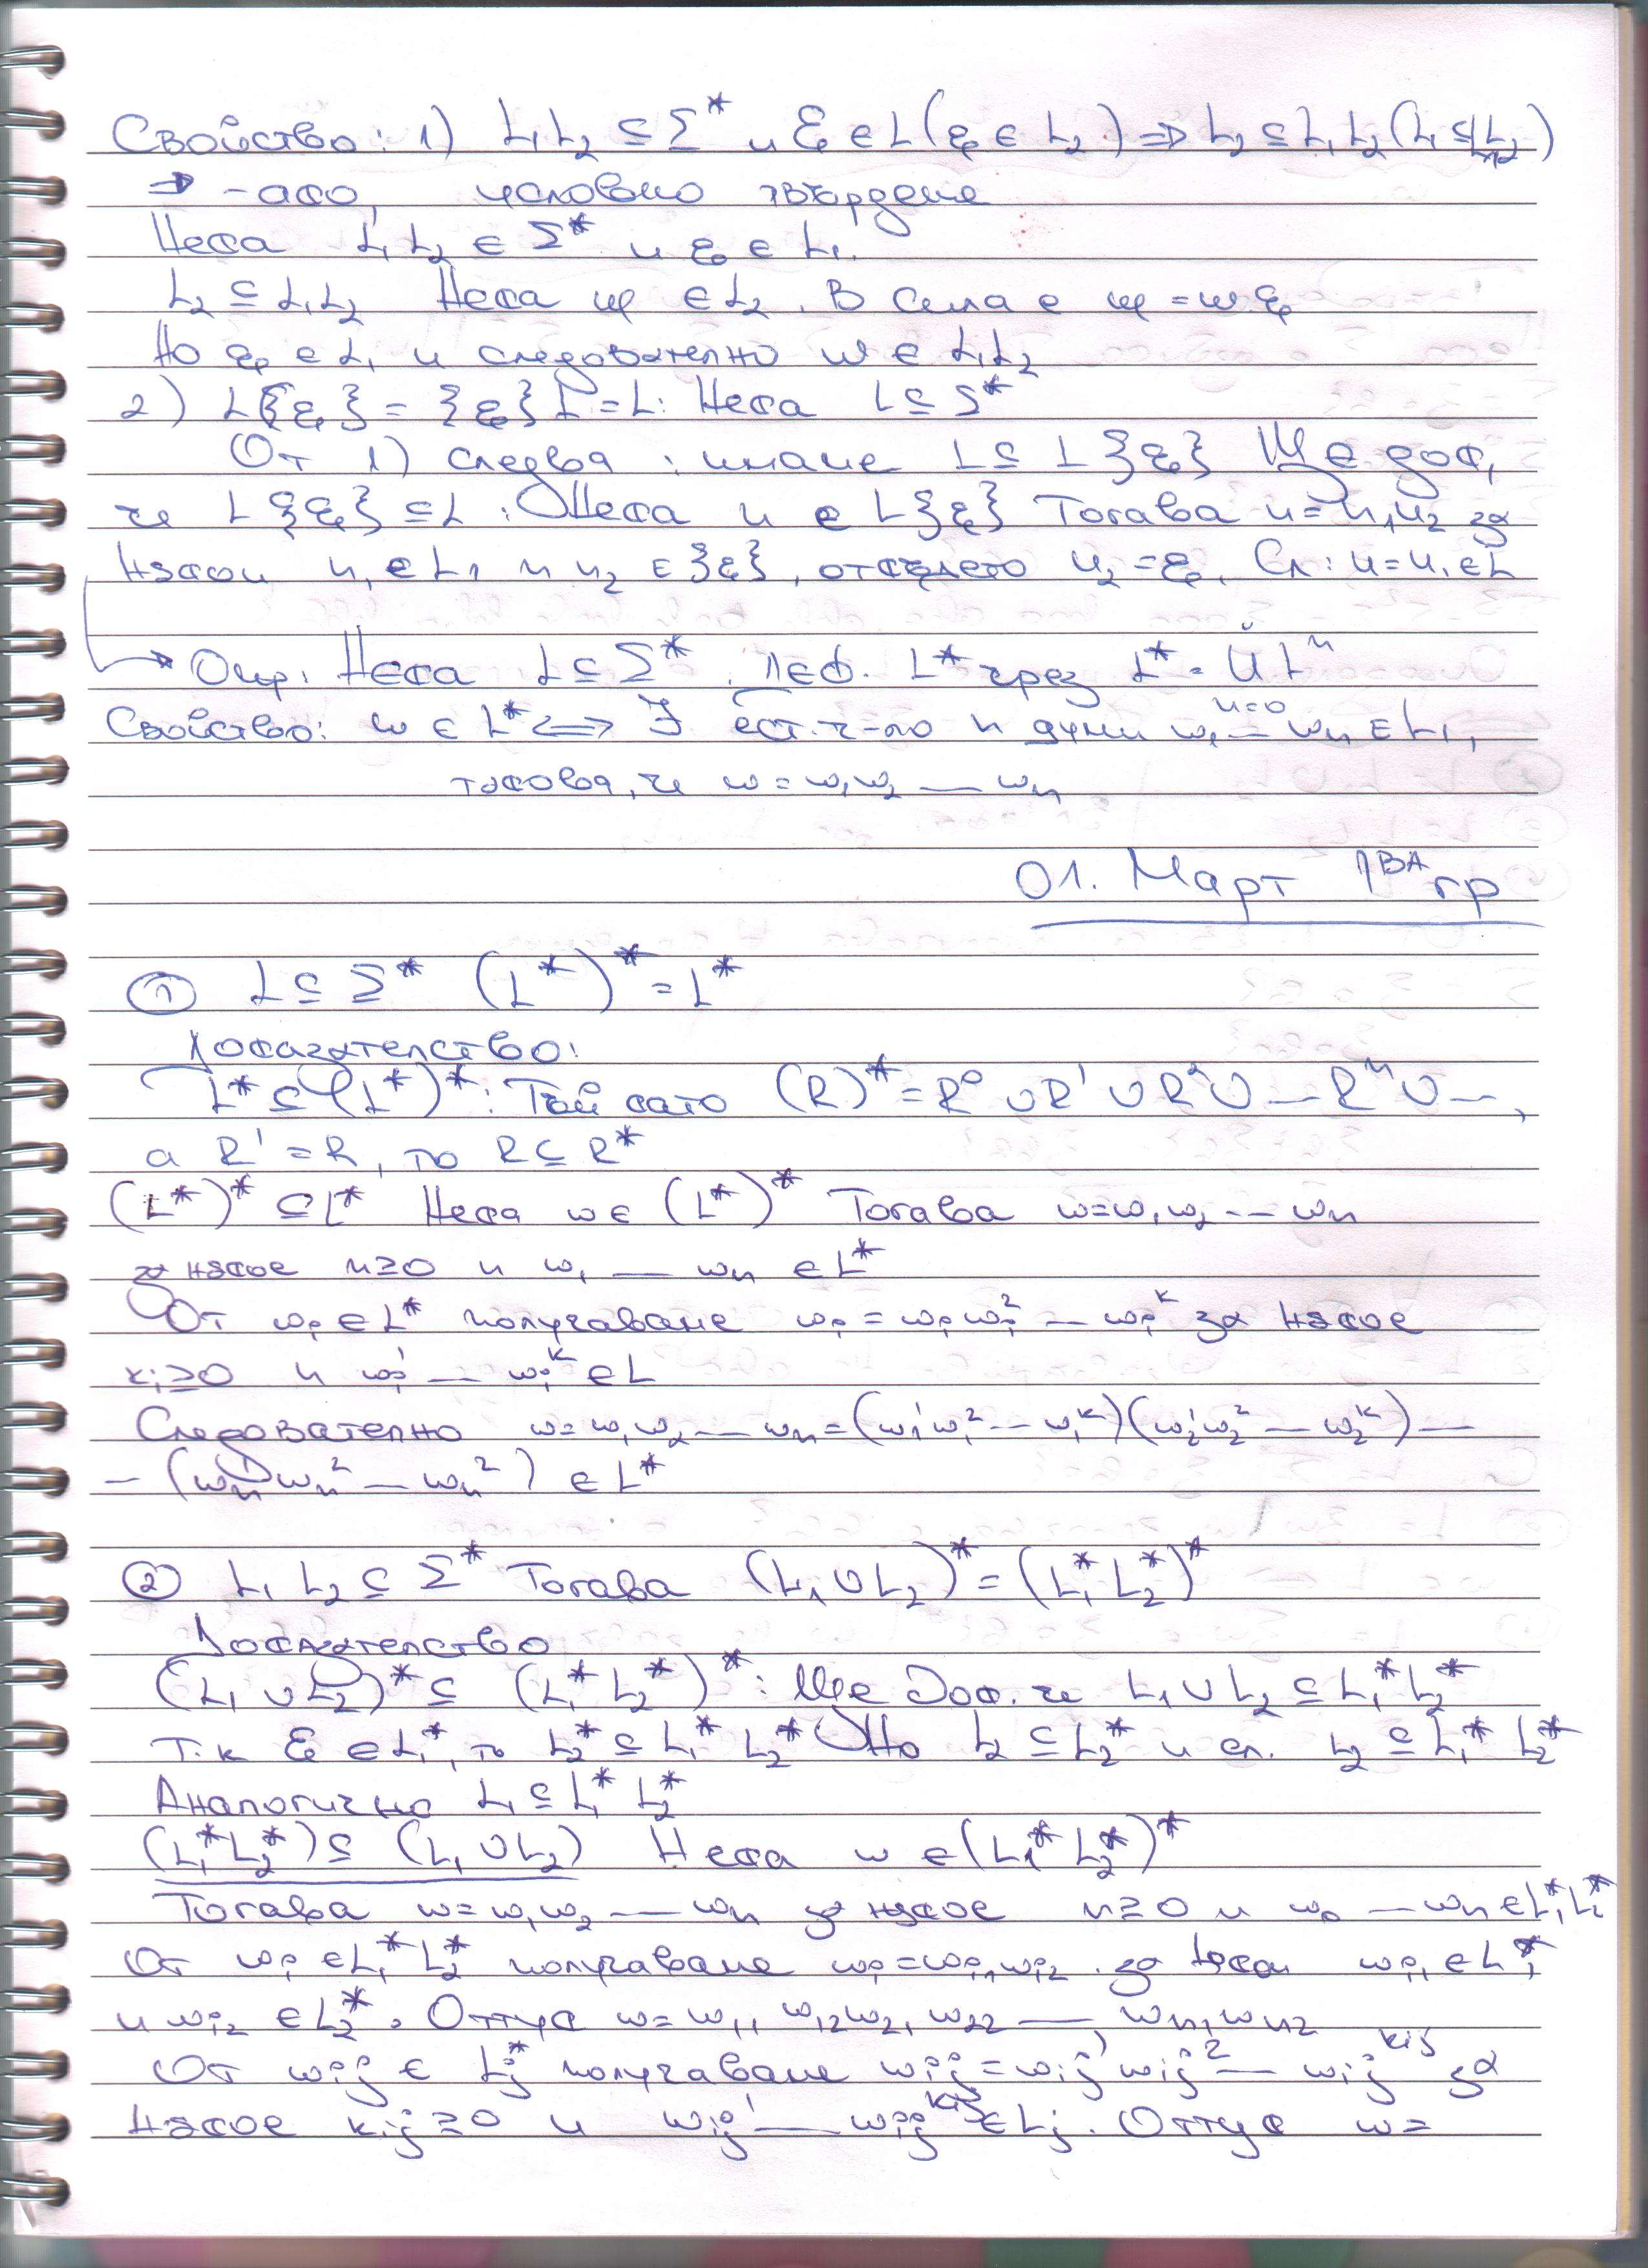 Свойство: 1) L₁L₂ ⊆ Σ* и ε ∈ L (ε ∈ L₂) ⇒ L₂ ⊆ L₁L₂ (L₁ ⊆ L₁L₂)
⇒ - ако, условно твърдение
Нека L₁L₂ ∈ Σ* и ε ∈ L₁.
L₂ ⊆ L₁L₂ Нека ψ ∈ L₂. В сила е ψ = w.ε
Но ε ∈ L₁ и следователно w ∈ L₁L₂
2) L{ε} = {ε}L = L: Нека L ⊆ Σ*
От 1) следва: имаме L ⊆ L{ε} Ще док,
че L{ε} ⊆ L: Нека u ∈ L{ε} Тогава u = u₁u₂ за
някои u₁ ∈ L₁ и u₂ ∈ {ε}, откъдето u₂ = ε. Сл: u = u₁ ∈ L
→ Опр. Нека L ⊆ Σ*. Деф. L* чрез L* = ∪ Lⁿ
n=0
Свойство: w ∈ L* ⇔ ∃ ест. ч-ло n думи w₁ — wn ∈ L₁,
такова, че w = w₁w₂ — wn
01. Март 1ВА гр
① L ⊆ Σ* (L*)* = L*
Доказателство:
L* ⊆ (L*)*: Тъй като (R)* = R⁰ ∪ R¹ ∪ R² ∪ — Rⁿ ∪ —,
а R¹ = R, то R ⊆ R*
(L*)* ⊆ L* Нека w ∈ (L*)* Тогава w = w₁w₂ -- wn
за някое n ≥ 0 и w₁ — wn ∈ L*
От wᵢ ∈ L* получаваме wᵢ = wᵢwᵢ² — wᵢᵏ за някое
kᵢ ≥ 0 и wᵢ¹ — wᵢᵏ ∈ L
Следователно w = w₁w₂ — wn = (w₁¹w₁² -- w₁ᵏ)(w₂¹w₂² — w₂ᵏ) —
— (wn¹wn² — wn²) ∈ L*
② L₁ L₂ ⊆ Σ* Тогава (L₁ ∪ L₂)* = (L₁* L₂*)*
Доказателство
(L₁ ∪ L₂)* ⊆ (L₁* L₂*)*: Ще док. че L₁ ∪ L₂ ⊆ L₁* L₂*
Т.к ε ∈ L₁*, то L₂* ⊆ L₁* L₂* Но L₂ ⊆ L₂* и сл. L₂ ⊆ L₁* L₂*
Аналогично L₁ ⊆ L₁* L₂*
(L₁*L₂*) ⊆ (L₁ ∪ L₂) Нека w ∈ (L₁* L₂*)*
Тогава w = w₁w₂ — wn за някое n ≥ 0 и w₀ — wn ∈ L₁*L₂*
От wᵢ ∈ L₁* L₂* получаваме wᵢ = wᵢ₁wᵢ₂ за някои wᵢ₁ ∈ L₁*
и wᵢ₂ ∈ L₂*. Оттук w = w₁₁ w₁₂w₂₁ w₂₂ — wn₁wn₂
От wᵢⱼ ∈ Lⱼ* получаваме wᵢⱼ = wᵢⱼ¹wᵢⱼ² — wᵢⱼ^kij за
някое kᵢⱼ ≥ 0 и wᵢⱼ¹ — wᵢⱼ^kij ∈ Lⱼ. Оттук w =